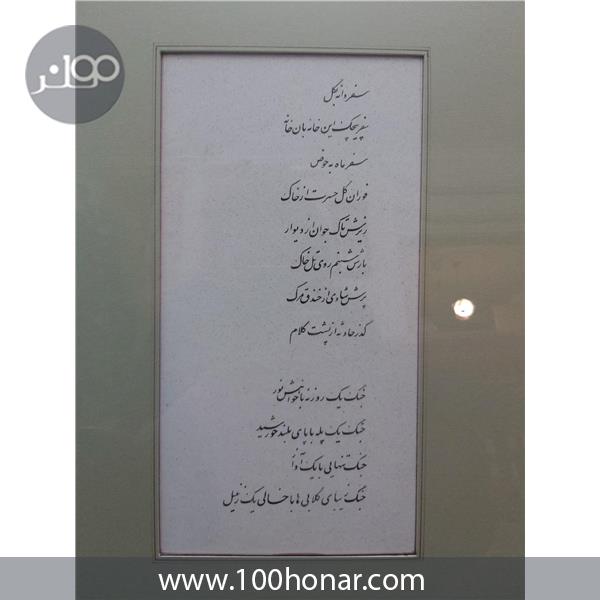 صدهنر
سفر دانه به گل
سفر پیچک این خانه به آن خانه
سفر ماه به حوض
فوران گل حسرت از خاک
ریزش تاک جوان از دیوار
بارش شبنم روی پل خاک
پرش شادی از خندق مرگ
گذر حادثه از پشت کلام
جنگ یک روزنه با خواهش نور
جنگ یک پله با پای بلند خورشید
جنگ تنهایی با یک آواز
جنگ زیبای گلابی ها با خالی یک زنبیل
www.100honar.com